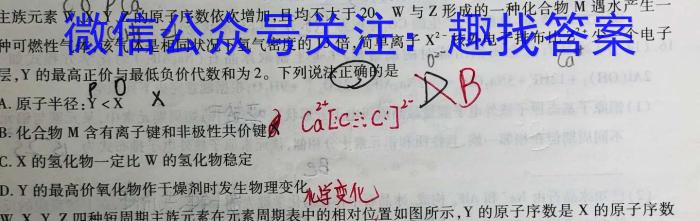 C O P Ca
主族元素 W、X、Y、Z 的原子序数依次增加,且均不大于20。W 与 Z 形成的一种化合物 M 遇水产生一
种可燃性气体,该气体是相同状况下氢气密度的
微信公众号关注:趣找答案
倍,简单离子 X²⁻ 电子 少 个电子
O²⁻ Ca
层,Y 的最高正价与最低负价代数和为2。下列说法正确的是
P O
A. 原子半径:Y<X X
B. 化合物 M 含有离子键和非极性共价键 Ca²⁺[:C⋮⋮C:]²⁻ B
C. X 的氢化物一定比 W 的氢化物稳定
D. Y 的最高价氧化物作干燥剂时发生物理变化 化学变化
W、X、Y、Z 四种短周期主族元素在元素周期表中的相对位置如图所示,Y 的原子序数是 X 的原子序数